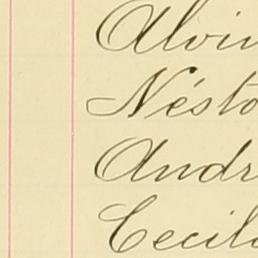 Alvin
Nésto
Andr
Cecil